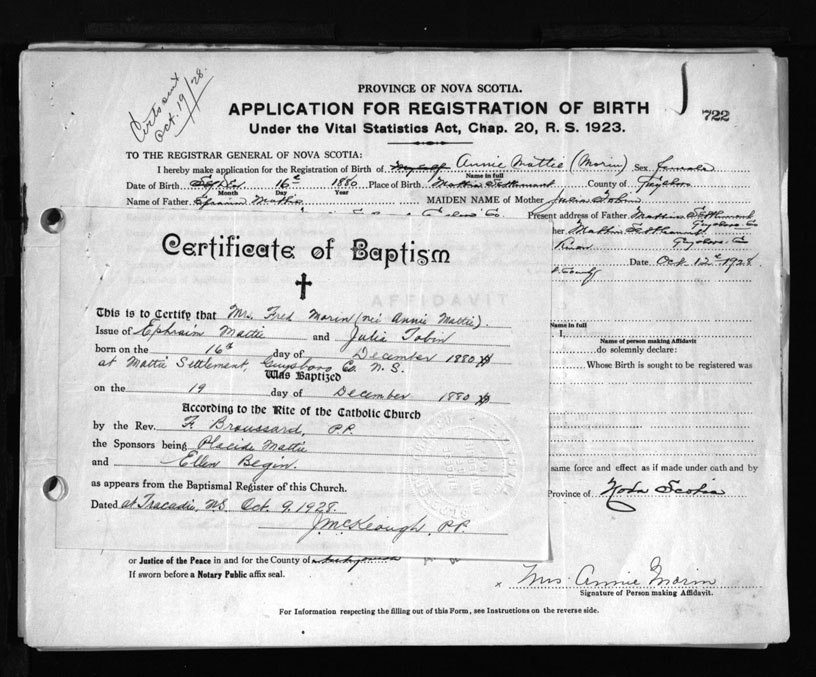 Certs sent
Oct. 19/28.
PROVINCE OF NOVA SCOTIA.
APPLICATION FOR REGISTRATION OF BIRTH
722
Under the Vital Statistics Act, Chap. 20, R. S. 1923.
TO THE REGISTRAR GENERAL OF NOVA SCOTIA:
I hereby make application for the Registration of Birth of myself Annie Mattie (Morin) Sex female
Name in full
Date of Birth 16th 1880 Place of Birth Mattie Settlement County of Guysboro
Month Day Year
Name of Father Ephraim Mattie MAIDEN NAME of Mother Julia Tobin
Present address of Father Mattie Settlement
Guysboro Co
her Mattie Settlement
Guysboro Co
Date Oct 12th 1928.
County
Certificate of Baptism
AFFIDAVIT
This is to Certify that Mrs. Fred Morin (neé Annie Mattie).
Issue of Ephraim Mattie and Julia Tobin
born on the 16th day of December 1880
at Mattie Settlement, Guysboro Co. N. S.
Was Baptized
on the 19 day of December 1880
According to the Rite of the Catholic Church
by the Rev. F. Broussard, P.P.
the Sponsors being Placide Mattie
and Ellen Begin.
as appears from the Baptismal Register of this Church.
Dated at Tracadie, N.S. Oct. 9, 1928.
J. McKeough, P.P.
Name in full
I,
Name of person making Affidavit
do solemnly declare:
Whose Birth is sought to be registered was
same force and effect as if made under oath and by
Province of Nova Scotia
or Justice of the Peace in and for the County of
If sworn before a Notary Public affix seal.
x Mrs Annie Morin
Signature of Person making Affidavit.
For Information respecting the filling out of this Form, see Instructions on the reverse side.